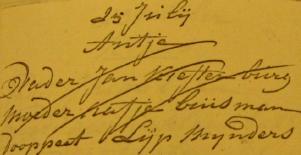 25 Julij
Antje
Vader Jan Kiestenburg
Moeder Aatje buisman
dooppeet Lijp Mijnders